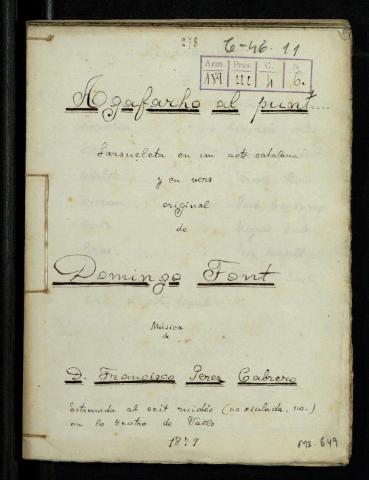 278
C-46-11
Arm. Pres. C. N.
189 III 4 6.
Agafarho al punt....
Sarsueleta en un acte catalana
y en vers
original
de
Domingo Font
Música
de
D. Francisco Perez Cabrero
Estrenada ab exit ruidós (no xiulada, no.)
en lo teatro de Valls
1879
MS-649